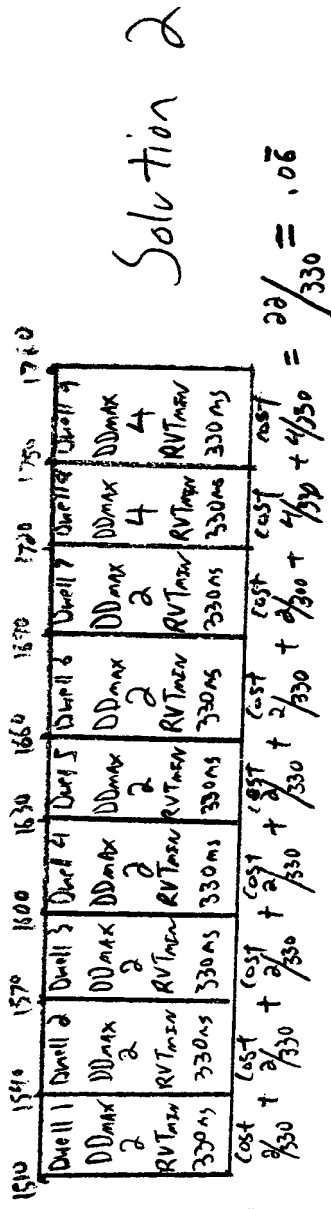 Solution 2
1510 1540 1570 1600 1630 1660 1690 1720 1750 1780
Dwell 1 Dwell 2 Dwell 3 Dwell 4 Dwell 5 Dwell 6 Dwell 7 Dwell 8 Dwell 9
DDMAX DDMAX DDMAX DDMAX DDMAX DDMAX DDMAX DDMAX DDMAX
2 2 2 2 2 2 2 4 4
RVTMIN RVTMIN RVTMIN RVTMIN RVTMIN RVTMIN RVTMIN RVTMIN RVTMIN
330ms 330ms 330ms 330ms 330ms 330ms 330ms 330ms 330ms
Cost Cost Cost Cost Cost Cost Cost Cost Cost
2/330 + 2/330 + 2/330 + 2/330 + 2/330 + 2/330 + 2/300 + 4/330 + 4/330 = 22/330 = .06̄